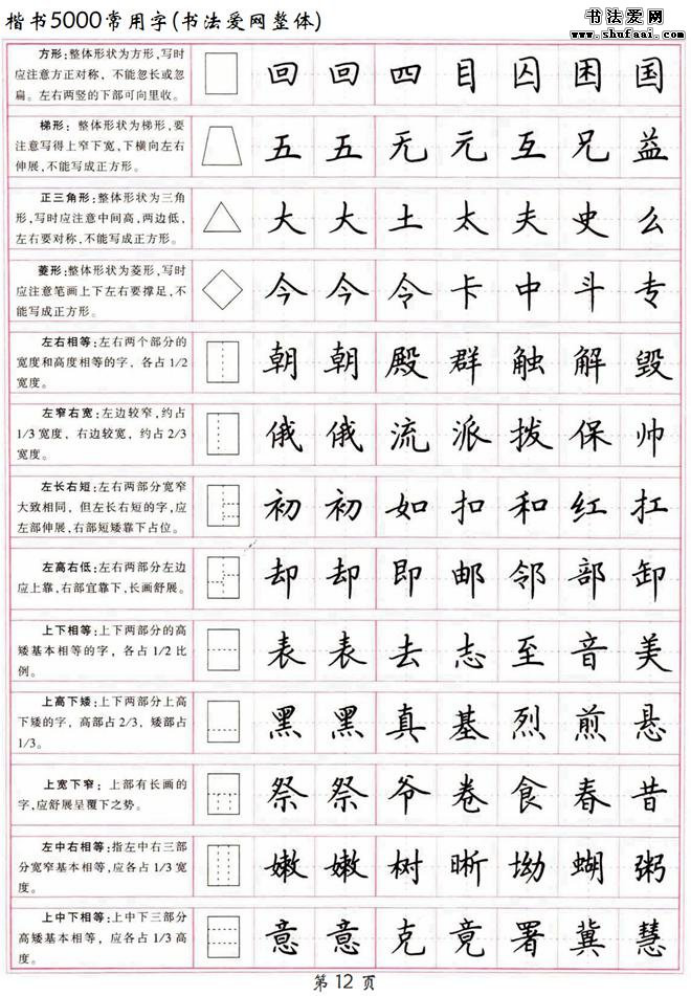 楷书5000常用字(书法爱网整体)
书法爱网
www.shufaai.com
方形:整体形状为方形,写时
应注意方正对称，不能忽长或忽
扁。左右两竖的下部可向里收。
回 回 四 目 囚 困 国
梯形：整体形状为梯形,要
注意写得上窄下宽,下横向左右
伸展,不能写成正方形。
五 五 无 元 互 兄 益
正三角形:整体形状为三角
形,写时应注意中间高,两边低,
左右要对称,不能写成正方形。
大 大 土 太 夫 史 么
菱形:整体形状为菱形,写时
应注意笔画上下左右要撑足,不
能写成正方形。
今 今 令 卡 中 斗 专
左右相等:左右两个部分的
宽度和高度相等的字，各占1/2
宽度。
朝 朝 殿 群 触 解 毁
左窄右宽:左边较窄,约占
1/3宽度，右边较宽，约占2/3
宽度。
俄 俄 流 派 拨 保 帅
左长右短:左右两部分宽窄
大致相同，但左长右短的字,应
左部伸展,右部短矮靠下占位。
初 初 如 扣 和 红 扛
左高右低:左右两部分左边
应上靠,右部宜靠下,长画舒展。
却 却 即 邮 邻 部 卸
上下相等:上下两部分的高
矮基本相等的字，各占1/2比
例。
表 表 去 志 至 音 美
上高下矮:上下两部分上高
下矮的字，高部占2/3，矮部占
1/3。
黑 黑 真 基 烈 煎 悬
上宽下窄：上部有长画的
字,应舒展呈覆下之势。
祭 祭 爷 卷 食 春 昔
左中右相等:指左中右三部
分宽窄基本相等,应各占1/3宽
度。
嫩 嫩 树 晰 坳 蝴 粥
上中下相等:上中下三部分
高矮基本相等，应各占1/3高
度。
意 意 克 竟 署 冀 慧
第 12 页